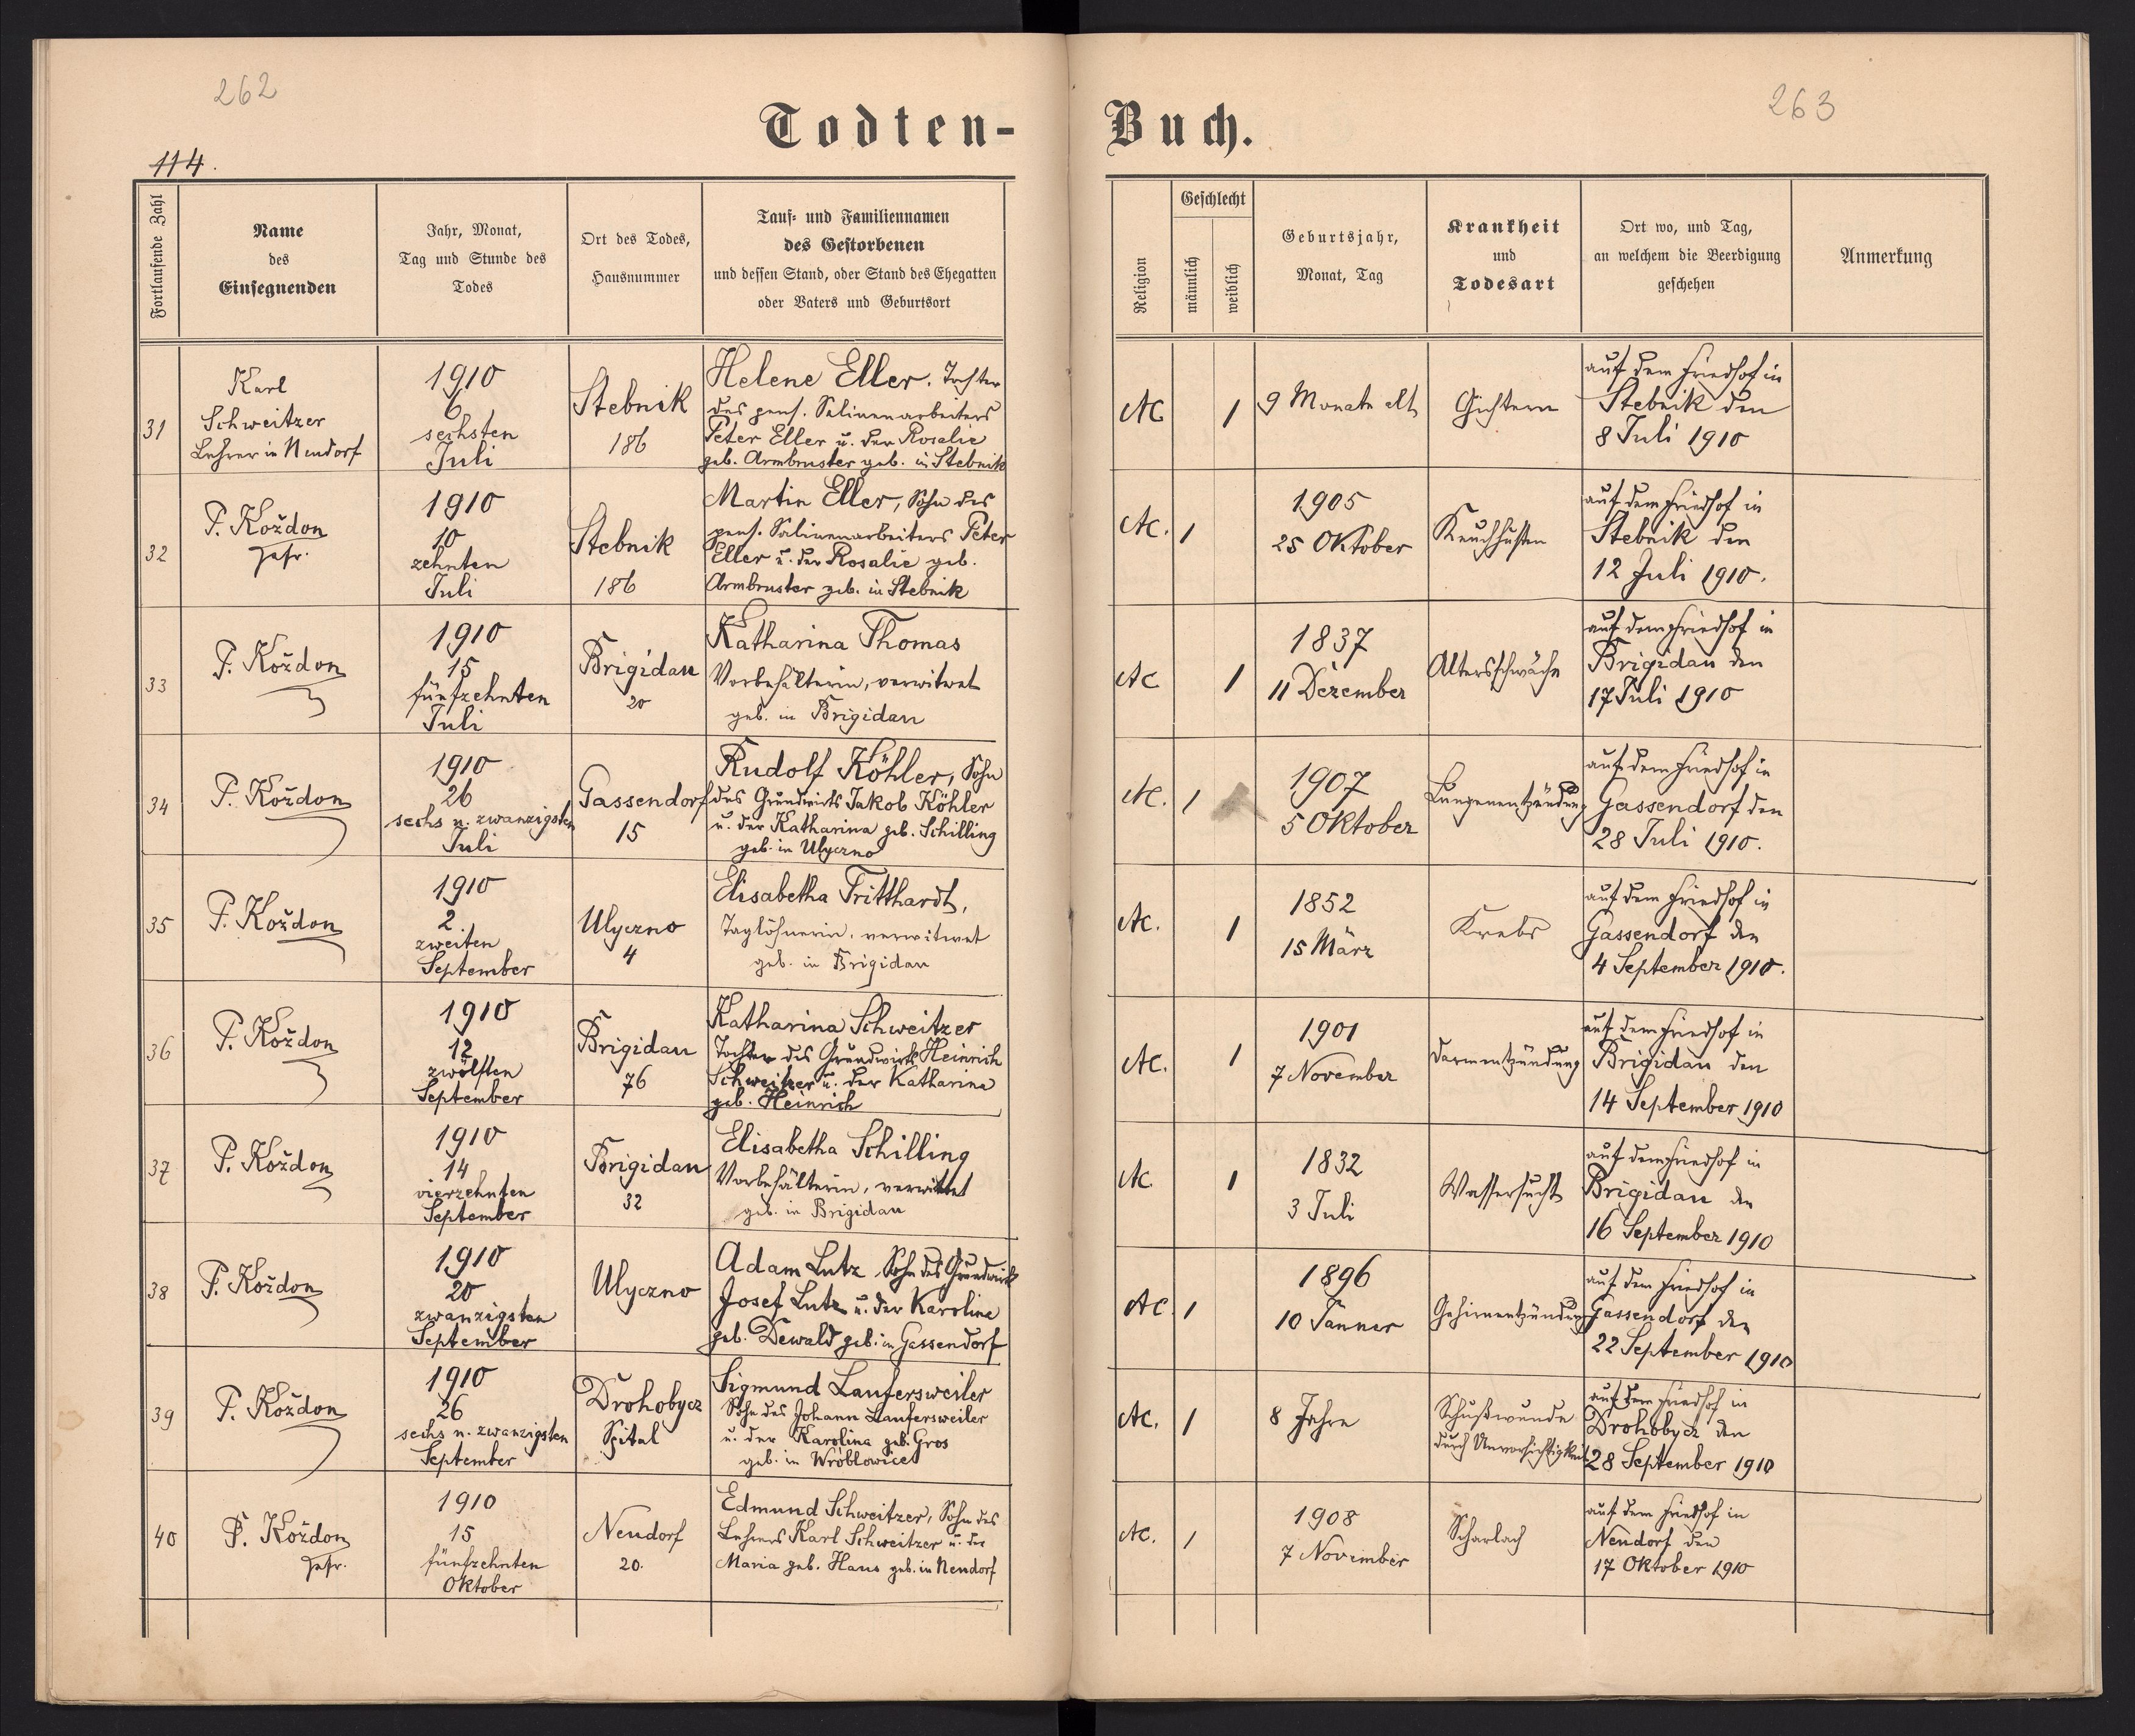 262
263
Todten-Buch.
114.
Fortlaufende Zahl
Name
des
Einsegnenden
Jahr, Monat,
Tag und Stunde des
Todes
Ort des Todes,
Hausnummer
Tauf- und Familiennamen
des Gestorbenen
und dessen Stand, oder Stand des Ehegatten
oder Vaters und Geburtsort
Religion
Geschlecht
männlich
weiblich
Geburtsjahr,
Monat, Tag
Krankheit
und
Todesart
Ort wo, und Tag,
an welchem die Beerdigung
geschehen
Anmerkung
31
Karl
Schweitzer
Lehrer in Neudorf
1910
6
sechsten
Juli
Stebnik
186
Helene Eller. Tochter
des pens. Salinenarbeiters
Peter Eller u. der Rosalie
geb. Armbruster geb. in Stebnik
AC
1
9 Monate alt
Gichtern
auf dem Friedhof in
Stebnik den
8 Juli 1910
32
P. Koždon
Pfr.
1910
10
zehnten
Juli
Stebnik
186
Martin Eller, Sohn des
pens. Salinenarbeiters Peter
Eller u. der Rosalie geb.
Armbruster geb. in Stebnik
AC.
1
1905
25 Oktober
Keuchhusten
auf dem Friedhof in
Stebnik den
12 Juli 1910.
33
P. Koždon
1910
15
fünfzehnten
Juli
Brigidau
20
Katharina Thomas
Vorbehälterin, verwitwet
geb. in Brigidau
AC
1
1837
11 Dezember
Altersschwäche
auf dem Friedhof in
Brigidau den
17 Juli 1910
34
P. Koždon
1910
26
sechs u. zwanzigsten
Juli
Gassendorf
15
Rudolf Köhler, Sohn
des Grundwirts Jakob Köhler
u. der Katharina geb. Schilling
geb. in Ulyczno
AC.
1
1907
5 Oktober
Lungenentzündung
auf dem Friedhof in
Gassendorf den
28 Juli 1910.
35
P. Koždon
1910
2.
zweiten
September
Ulyczno
4
Elisabetha Tritthardt,
Taglöhnerin, verwitwet
geb. in Brigidau
AC.
1
1852
15 März
Krebs
auf dem Friedhof in
Gassendorf den
4 September 1910.
36
P. Koždon
1910
12
zwölften
September
Brigidau
76
Katharina Schweitzer
Tochter des Grundwirts Heinrich
Schweitzer u. der Katharina
geb. Heinrich
AC.
1
1901
7 November
Darmentzündung
auf dem Friedhof in
Brigidau den
14 September 1910
37
P. Koždon
1910
14
vierzehnten
September
Brigidau
32
Elisabetha Schilling
Vorbehälterin, verwittet
geb. in Brigidau
AC.
1
1832
3 Juli
Wassersucht
auf dem Friedhof in
Brigidau den
16 September 1910
38
P. Koždon
1910
20
zwanzigsten
September
Ulyczno
Adam Lutz, Sohn des Grundwirts
Josef Lutz u. der Karoline
geb. Dewald geb. in Gassendorf
AC.
1
1896
10 Jänner
Gehirnentzündung
auf dem Friedhof in
Gassendorf den
22 September 1910
39
P. Koždon
1910
26
sechs u. zwanzigsten
September
Drohobycz
Spital
Sigmund Laufersweiler
Sohn des Johann Laufersweiler
u. der Karolina geb. Gros
geb. in Wróblowice
AC.
1
8 Jahre
Schußwunde
durch Unvorsichtigkeit
auf dem Friedhof in
Drohobycz den
28 September 1910
40
P. Koždon
Pfr.
1910
15
fünfzehnten
Oktober
Neudorf
20.
Edmund Schweitzer, Sohn des
Lehrers Karl Schweitzer u. der
Maria geb. Haus geb. in Neudorf
AC.
1
1908
7 November
Scharlach
auf dem Friedhof in
Neudorf den
17 Oktober 1910